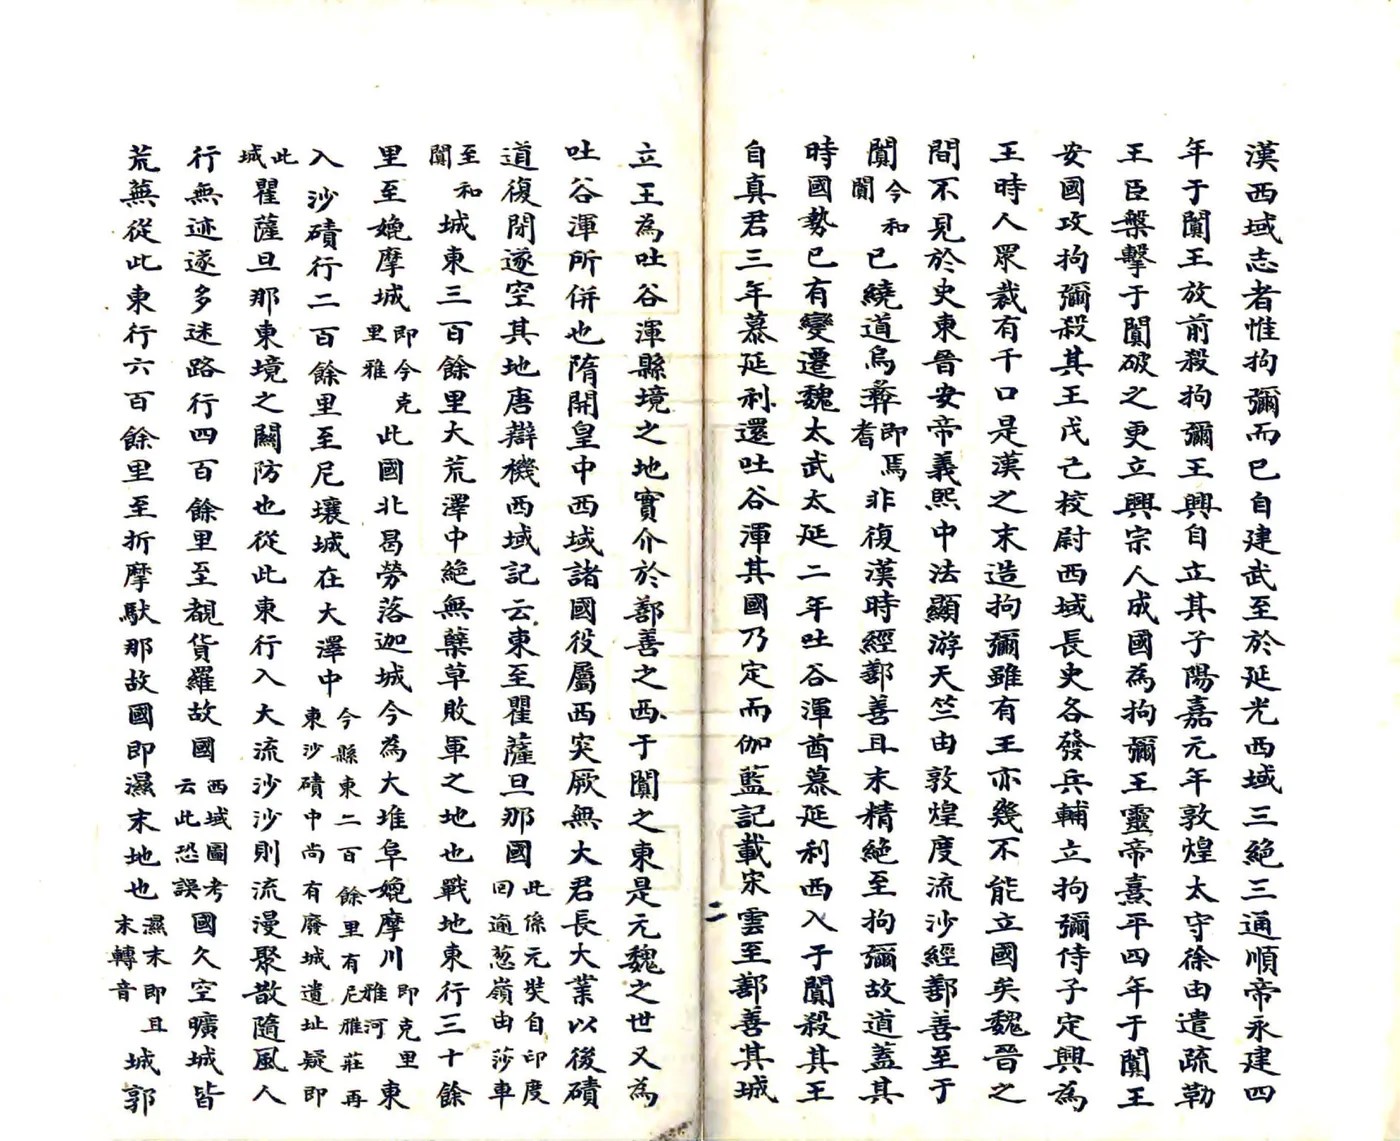 漢西域志者惟拘彌而已自建武至於延光西域三絕三通順帝永建四
年于闐王放前殺拘彌王興自立其子陽嘉元年敦煌太守徐由遣疏勒
王臣槃擊于闐破之更立興宗人成國為拘彌王靈帝熹平四年于闐王
安國攻拘彌殺其王戊己校尉西域長史各發兵輔立拘彌侍子定興為
王時人眾裁有千口是漢之末造拘彌雖有王亦幾不能立國矣魏晉之
間不見於史東晉安帝義熙中法顯游天竺由敦煌度流沙經鄯善至于
闐今和闐已繞道烏彝即焉耆非復漢時經鄯善且末精絕至拘彌故道蓋其
時國勢已有變遷魏太武太延二年吐谷渾酋慕延利西入于闐殺其王
自真君三年慕延利還吐谷渾其國乃定而伽藍記載宋雲至鄯善其城
二
立王為吐谷渾縣境之地實介於鄯善之西于闐之東是元魏之世又為
吐谷渾所併也隋開皇中西域諸國役屬西突厥無大君長大業以後磧
道復閉遂空其地唐辯機西域記云東至瞿薩旦那國此係元奘自印度回逾葱嶺由莎車
至和闐城東三百餘里大荒澤中絕無蘖草敗軍之地也戰地東行三十餘
里至媲摩城即今克里雅此國北曷勞落迦城今為大堆阜媲摩川即克里雅河東
入沙磧行二百餘里至尼壤城在大澤中今縣東二百餘里有尼雅莊再東沙磧中尚有廢城遺址疑即
此城瞿薩旦那東境之關防也從此東行入大流沙沙則流漫聚散隨風人
行無迹遂多迷路行四百餘里至覩貨羅故國西域圖考云此恐誤國久空曠城皆
荒蕪從此東行六百餘里至折摩馱那故國即濕末地也濕末即且末轉音城郭